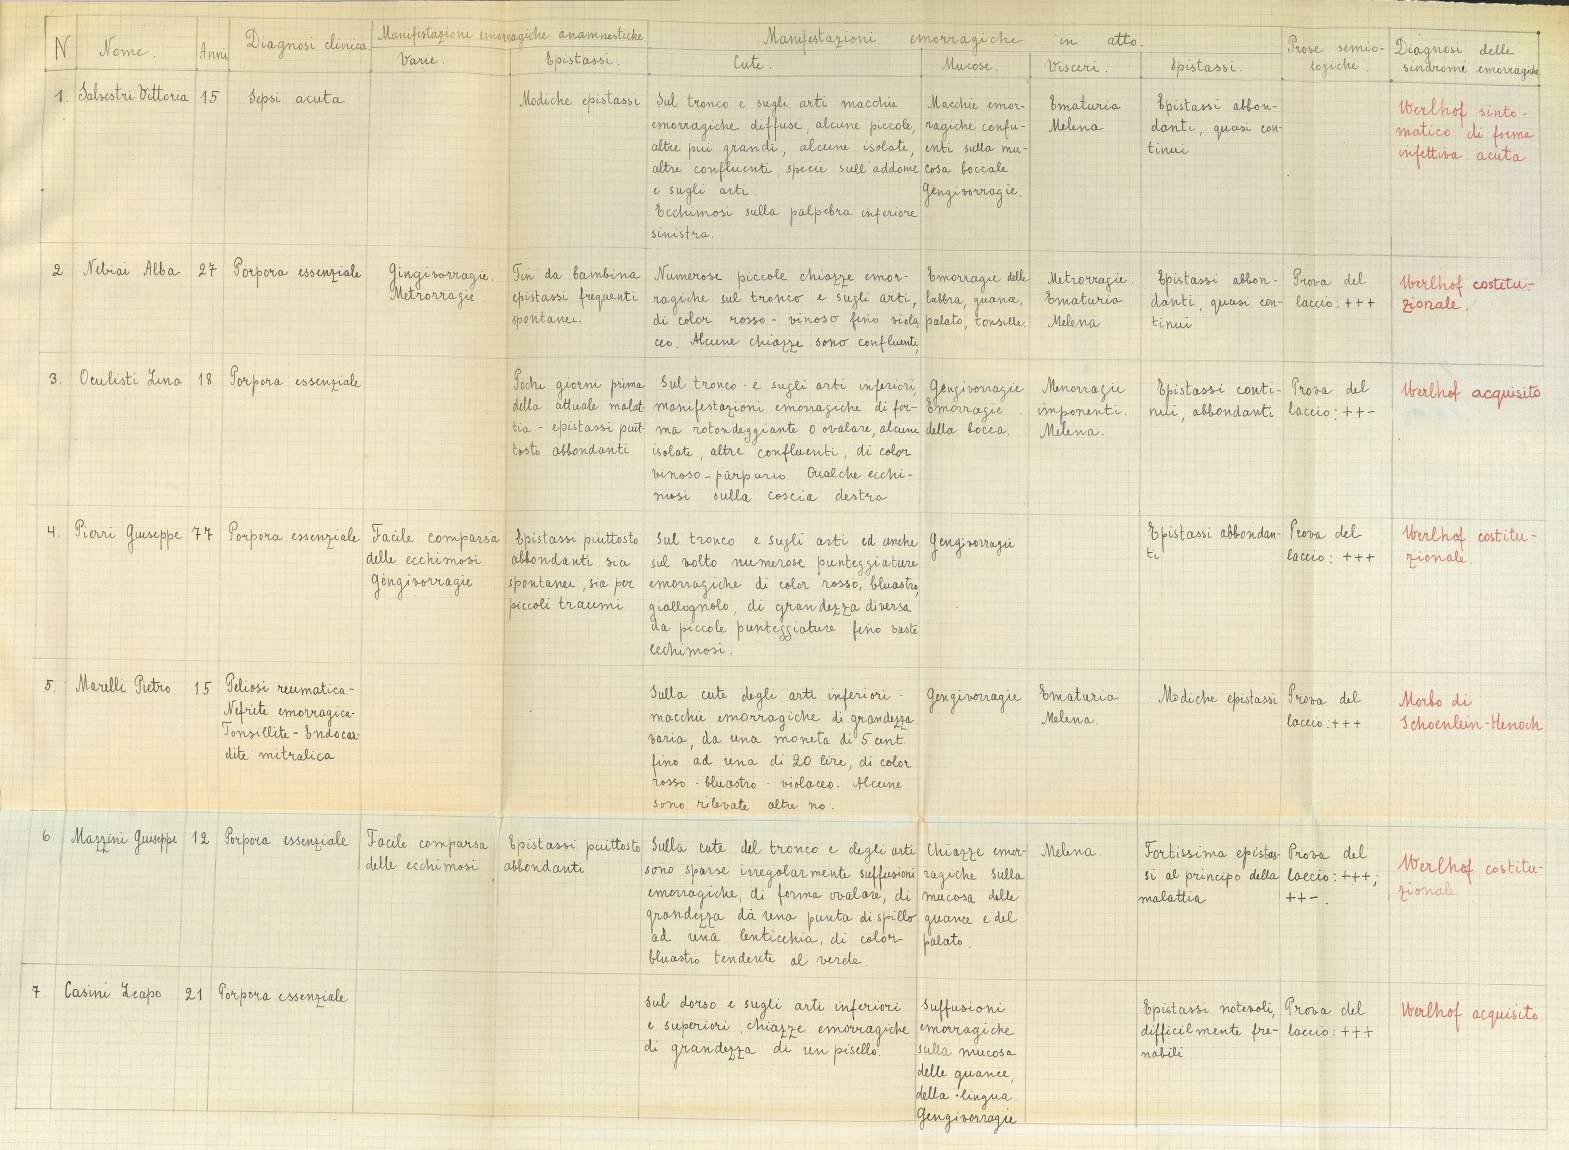 N
Nome.
Anni
Diagnosi clinica
Manifestazioni emorragiche anamnestiche
Varie.
Epistassi.
Manifestazioni emorragiche in atto.
Cute.
Mucose.
Visceri.
Epistassi.
Prove semio-
logiche.
Diagnosi delle
sindrome emorragiche
1.
Salvestri Vittoria
15
Sepsi acuta
Modiche epistassi
Sul tronco e sugli arti macchie
emorragiche diffuse, alcune piccole,
altre più grandi, alcune isolate,
altre confluenti, specie sull'addome
e sugli arti.
Ecchimosi sulla palpebra inferiore
sinistra.
Macchie emor-
ragiche conflu-
enti sulla mu-
cosa boccale.
Gengivorragie.
Ematuria
Melena
Epistassi abbon-
danti, quasi con-
tinui
Werlhof sinto-
matico di forma
infettiva acuta
2
Nebiai Alba
27
Porpora essenziale
Gingivorragie.
Metrorragie
Fin da bambina
epistassi frequenti
spontanei.
Numerose piccole chiazze emor-
ragiche sul tronco e sugli arti,
di color rosso-vinoso fino viola
ceo. Alcune chiazze sono confluenti,
Emorragie delle
labbra, guance,
palato, tonsille.
Metrorragie.
Ematuria
Melena
Epistassi abbon-
danti, quasi con-
tinui
Prova del
laccio: +++
Werlhof costitu-
zionale.
3.
Oculisti Lina
18
Porpora essenziale
Poche giorni prima
della attuale malat-
tia - epistassi piut-
tosto abbondanti
Sul tronco e sugli arti inferiori,
manifestazioni emorragiche di for-
ma rotondeggiante o ovalare, alcune
isolate, altre confluenti, di color
vinoso-purpurio Qualche ecchi-
mosi sulla coscia destra
Gengivorragie
Emorragie
della bocca.
Menorragie
imponenti.
Melena.
Epistassi conti-
nui, abbondanti
Prova del
laccio: ++-
Werlhof acquisito
4.
Pierri Giuseppe
77
Porpora essenziale
Facile comparsa
delle ecchimosi
Gengivorragie
Epistassi piuttosto
abbondanti sia
spontanei, sia per
piccoli traumi
Sul tronco e sugli arti ed anche
sul volto numerose punteggiature
emorragiche di color rosso, bluastro,
giallognolo, di grandezza diversa
da piccole punteggiature fino vaste
ecchimosi.
Gengivorragie
Epistassi abbondan-
ti
Prova del
laccio: +++
Werlhof costitu-
zionale.
5.
Marelli Pietro
15
Peliosi reumatica-
Nefrite emorragica-
Tonsillite-Endocar-
dite mitralica
Sulla cute degli arti inferiori -
macchie emorragiche di grandezza
varia, da una moneta di 5 cent.
fino ad una di 20 lire, di color
rosso-bluastro-violaceo. Alcune
sono rilevate altre no.
Gengivorragie
Ematuria
Melena.
Modiche epistassi
Prova del
laccio: +++
Morbo di
Schoenlein-Henoch
6
Mazzini Giuseppe
12
Porpora essenziale
Facile comparsa
delle ecchimosi
Epistassi piuttosto
abbondanti
Sulla cute del tronco e degli arti
sono sparse irregolarmente suffusioni
emorragiche, di forma ovalare, di
grandezza da una punta di spillo
ad una lenticchia, di color
bluastro tendente al verde.
Chiazze emor-
ragiche sulla
mucosa delle
guance e del
palato.
Melena.
Fortissima epistas-
si al principo della
malattia
Prova del
laccio: +++;
++-.
Werlhof costitu-
zionale
7
Casini Leapo
21
Porpora essenziale
Sul dorso e sugli arti inferiori
e superiori chiazze emorragiche
di grandezza di un pisello.
Suffusioni
emorragiche
sulla mucosa
delle guance,
della lingua.
Gengivorragie
Epistassi notevoli,
difficilmente fre-
nabili
Prova del
laccio: +++
Werlhof acquisito